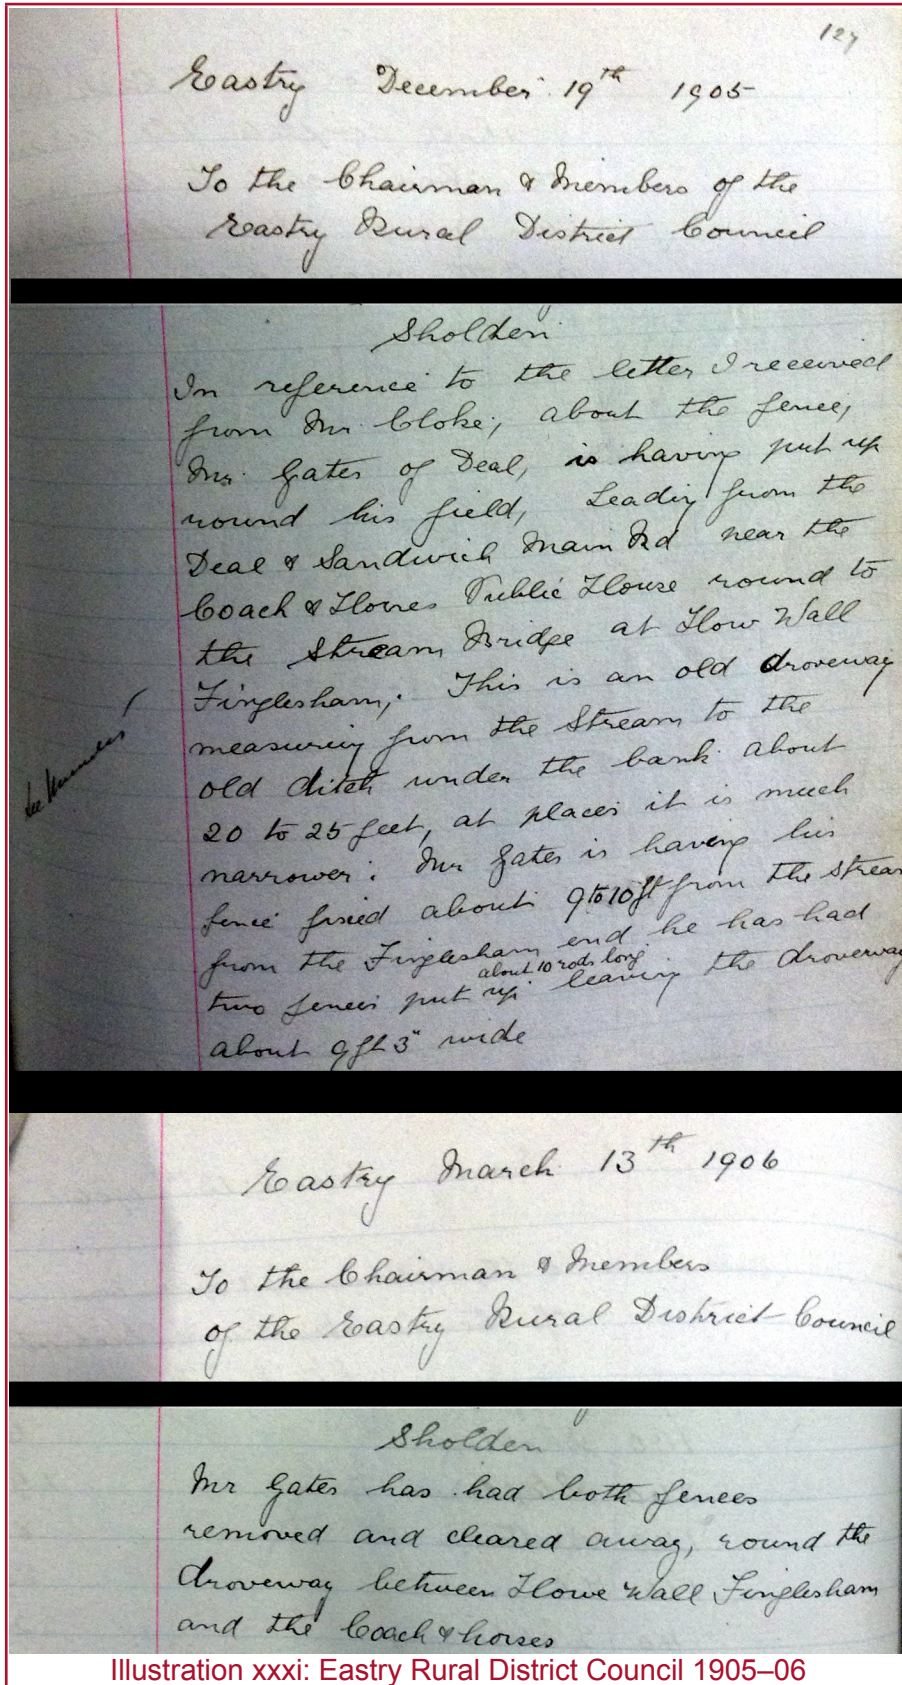 127
Eastry December 19th 1905
To the Chairman & Members of the
Eastry Rural District Council
Sholden
In reference to the letter I received
from Mr. Cloke, about the fence,
Mr. Gates of Deal, is having put up
round his field, Leading from the
Deal & Sandwich Main Rd near the
Coach & Horses Public House round to
the Stream Bridge at How Wall
Finglesham, This is an old droveway
measuring from the Stream to the
old ditch under the bank about
20 to 25 feet, at places it is much
narrower. Mr Gates is having his
fence fixed about 9 to 10 ft from the Stream
from the Finglesham end he has had
about 10 rods long
two fences put up leaving the droveway
about 9ft 3" wide
See
Eastry March 13th 1906
To the Chairman & Members
of the Eastry Rural District Council
Sholden
Mr Gates has had both fences
removed and cleared away, round the
droveway between Howe Wall Finglesham
and the Coach & horses
Illustration xxxi: Eastry Rural District Council 1905–06